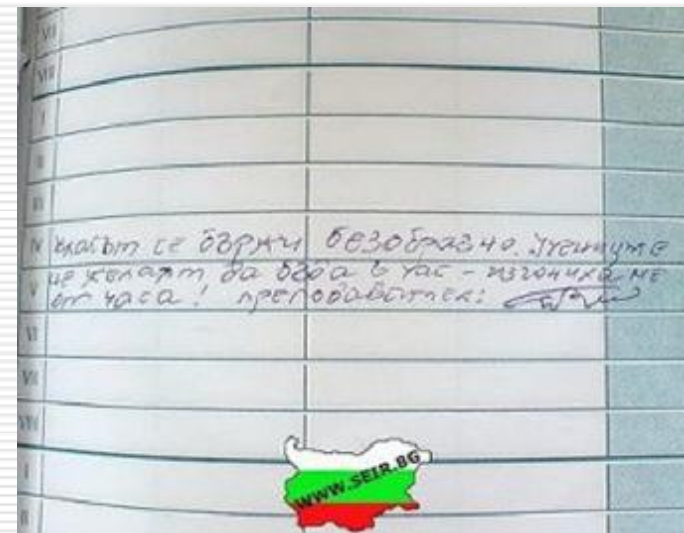 VII
VIII
I
II
III
IV Класът се държи безобразно. Учениците
V не желаят да бъда в час - изгониха ме
от часа! преподавател:
VI
VII
VIII
I
II
WWW.SEIR.BG